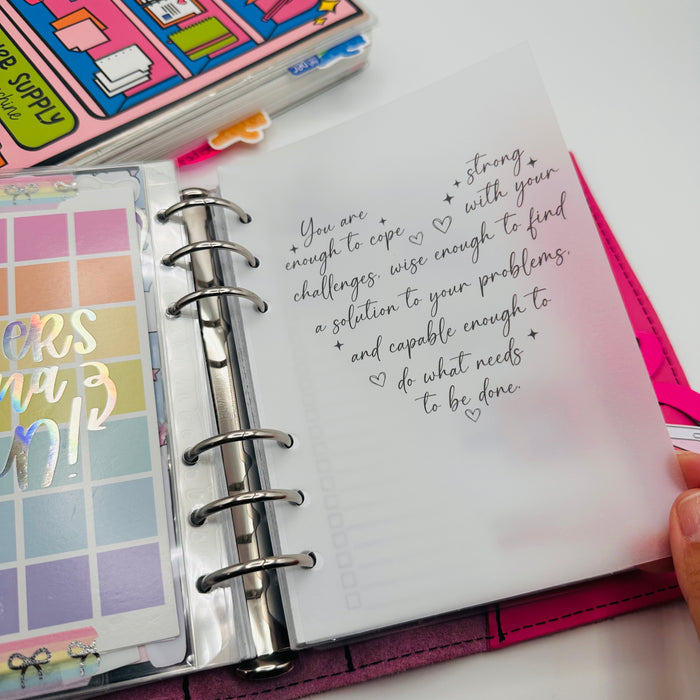 SUPPLY
You are
strong
enough to cope
with your
challenges, wise enough to find
a solution to your problems,
and capable enough to
do what needs
to be done.